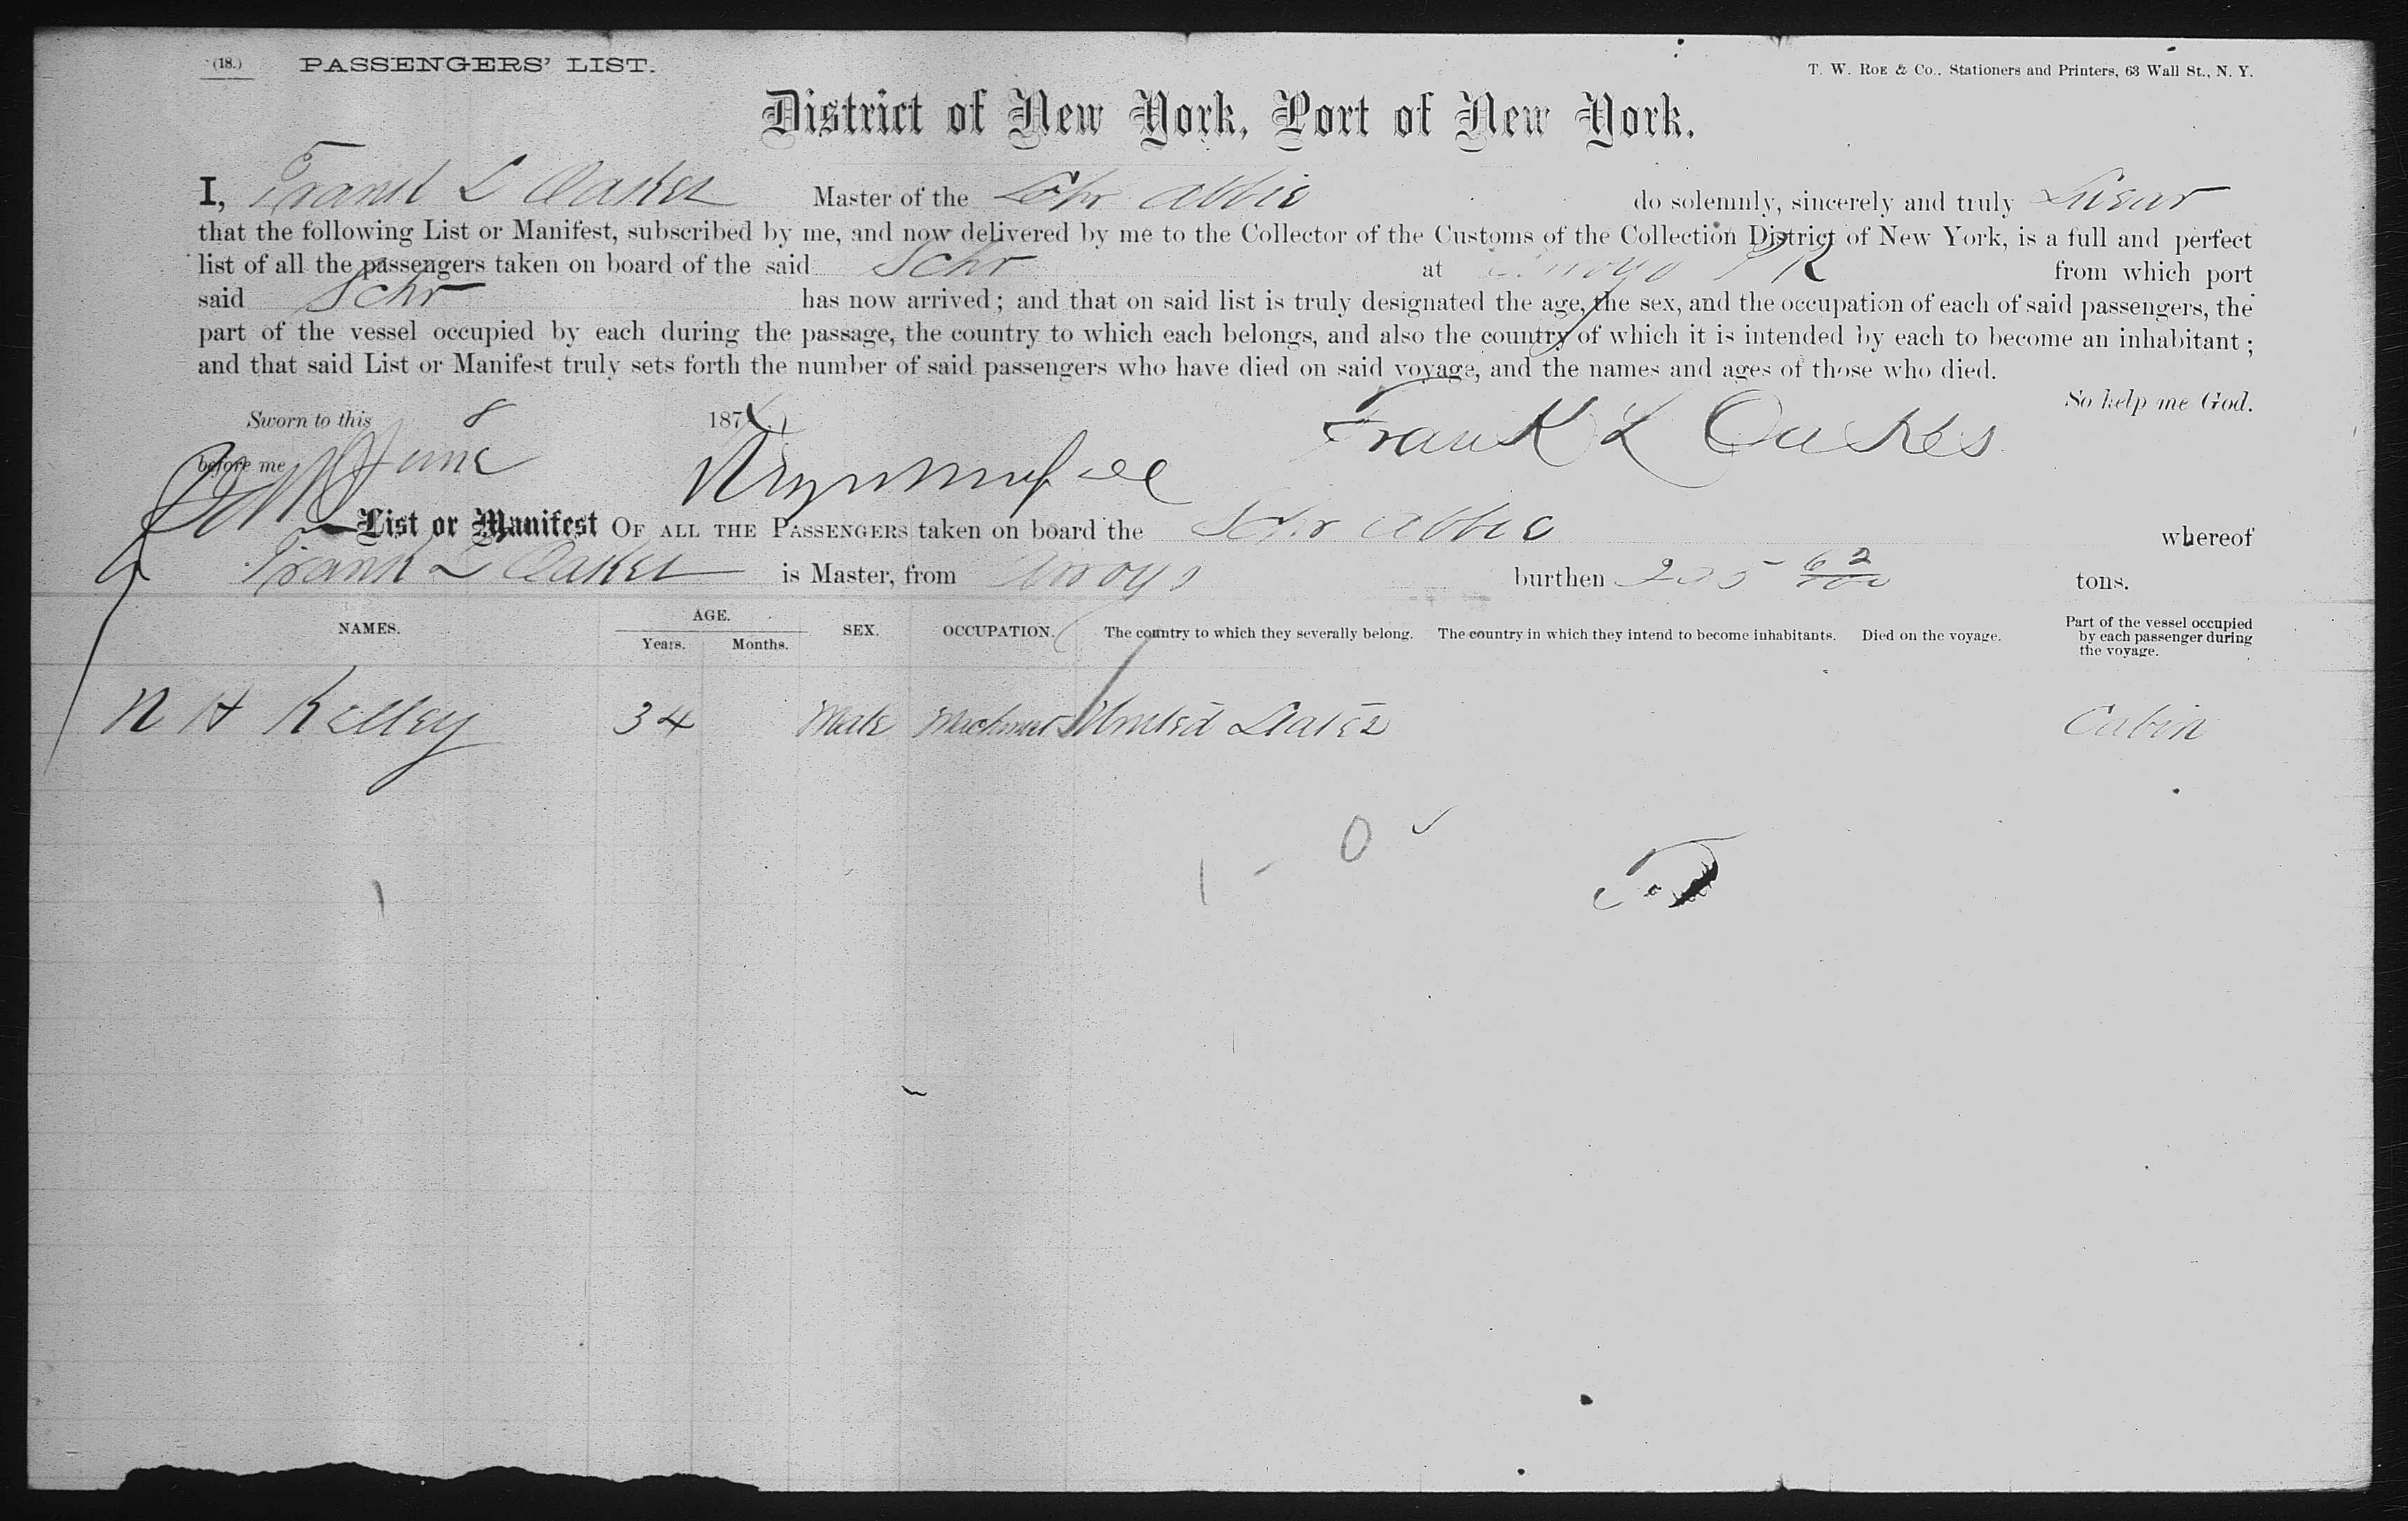 (18.) PASSENGERS' LIST. T. W. ROE & Co., Stationers and Printers, 63 Wall St., N. Y.
District of New York, Port of New York.
I, Frank L Oakes Master of the Schr Abbie do solemnly, sincerely and truly Swear
that the following List or Manifest, subscribed by me, and now delivered by me to the Collector of the Customs of the Collection District of New York, is a full and perfect
list of all the passengers taken on board of the said Schr at Arroyo P R from which port
said Schr has now arrived; and that on said list is truly designated the age, the sex, and the occupation of each of said passengers, the
part of the vessel occupied by each during the passage, the country to which each belongs, and also the country of which it is intended by each to become an inhabitant;
and that said List or Manifest truly sets forth the number of said passengers who have died on said voyage, and the names and ages of those who died.
So help me God.
Sworn to this 8 187 Frank L Oakes
before me June
List or Manifest OF ALL THE PASSENGERS taken on board the Schr Abbie whereof
Frank L Oakes is Master, from Arroyo burthen 62/100 tons.
NAMES. AGE. Years. Months. SEX. OCCUPATION. The country to which they severally belong. The country in which they intend to become inhabitants. Died on the voyage. Part of the vessel occupied by each passenger during the voyage.
N H Kelley 34 Male United States Cabin
1 1 - 0